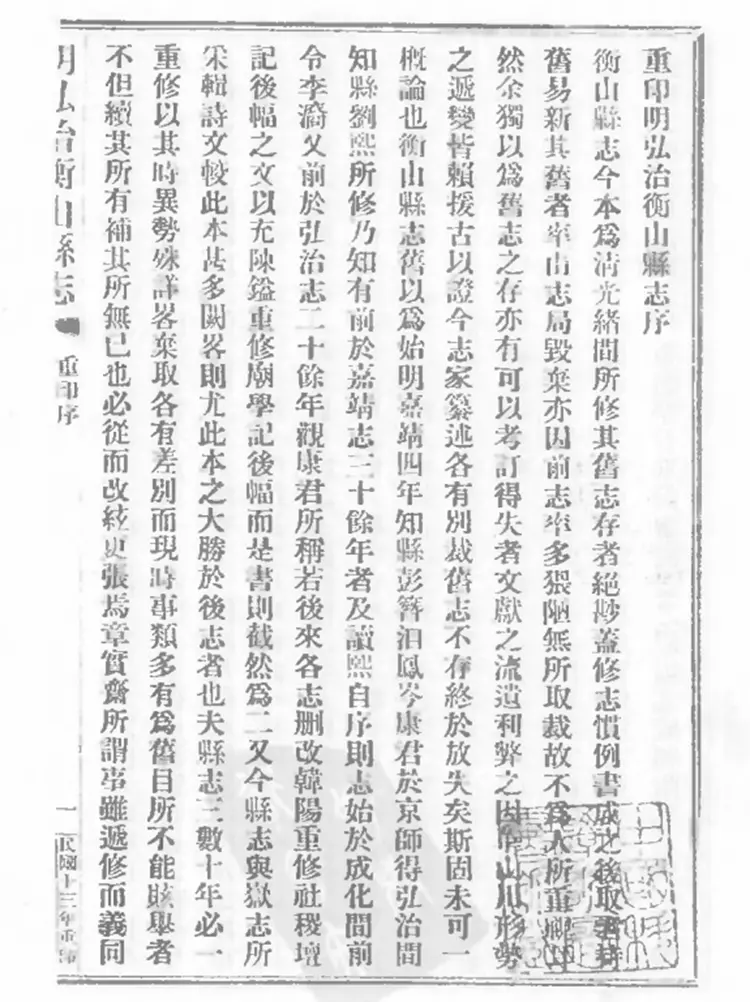 重印明弘治衡山縣志序
衡山縣志今本爲清光緒間所修其舊志存者絕尠蓋修志慣例書成之後取
舊易新其舊者率由志局毀棄亦因前志率多猥陋無所取裁故不爲人所重
然余獨以爲舊志之存亦有可以考訂得失者文獻之流遺利弊之因山川形勢
之遞變皆賴援古以證今志家纂述各有別裁舊志不存終於放失矣斯固未可一
概論也衡山縣志舊以爲始明嘉靖四年知縣彭簪汨鳳岑康君於京師得弘治間
知縣劉熙所修乃知有前於嘉靖志三十餘年者及讀熙自序則志始於成化間前
令李濬又前於弘治志二十餘年觀康君所稱若後來各志刪改韓陽重修社稷壇
記後幅之文以充陳鎰重修廟學記後幅而是書則截然爲二又今縣志與嶽志所
采輯詩文較此本甚多闕畧則尤此本之大勝於後志者也夫縣志三數十年必一
重修以其時異勢殊詳畧棄取各有差別而現時事類多有爲舊目所不能賅舉者
不但續其所有補其所無已也必從而改絃更張焉章實齋所謂事雖遞修而義同
明弘治衡山縣志
重印序
一
民國十三年重印